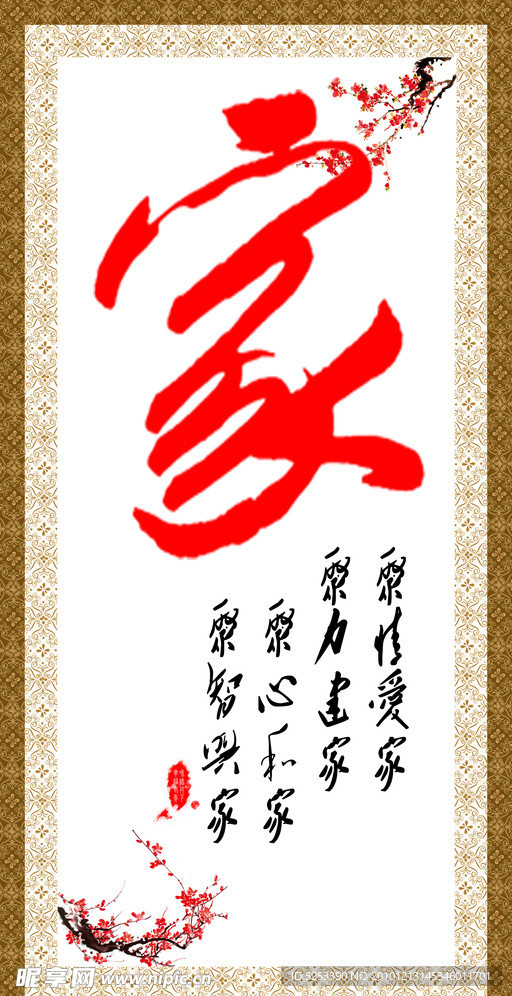 家
聚情愛家
聚力建家
聚心和家
聚智興家
昵享网 www.nipic.cn
ID:5253390 NO:20101213145346011701